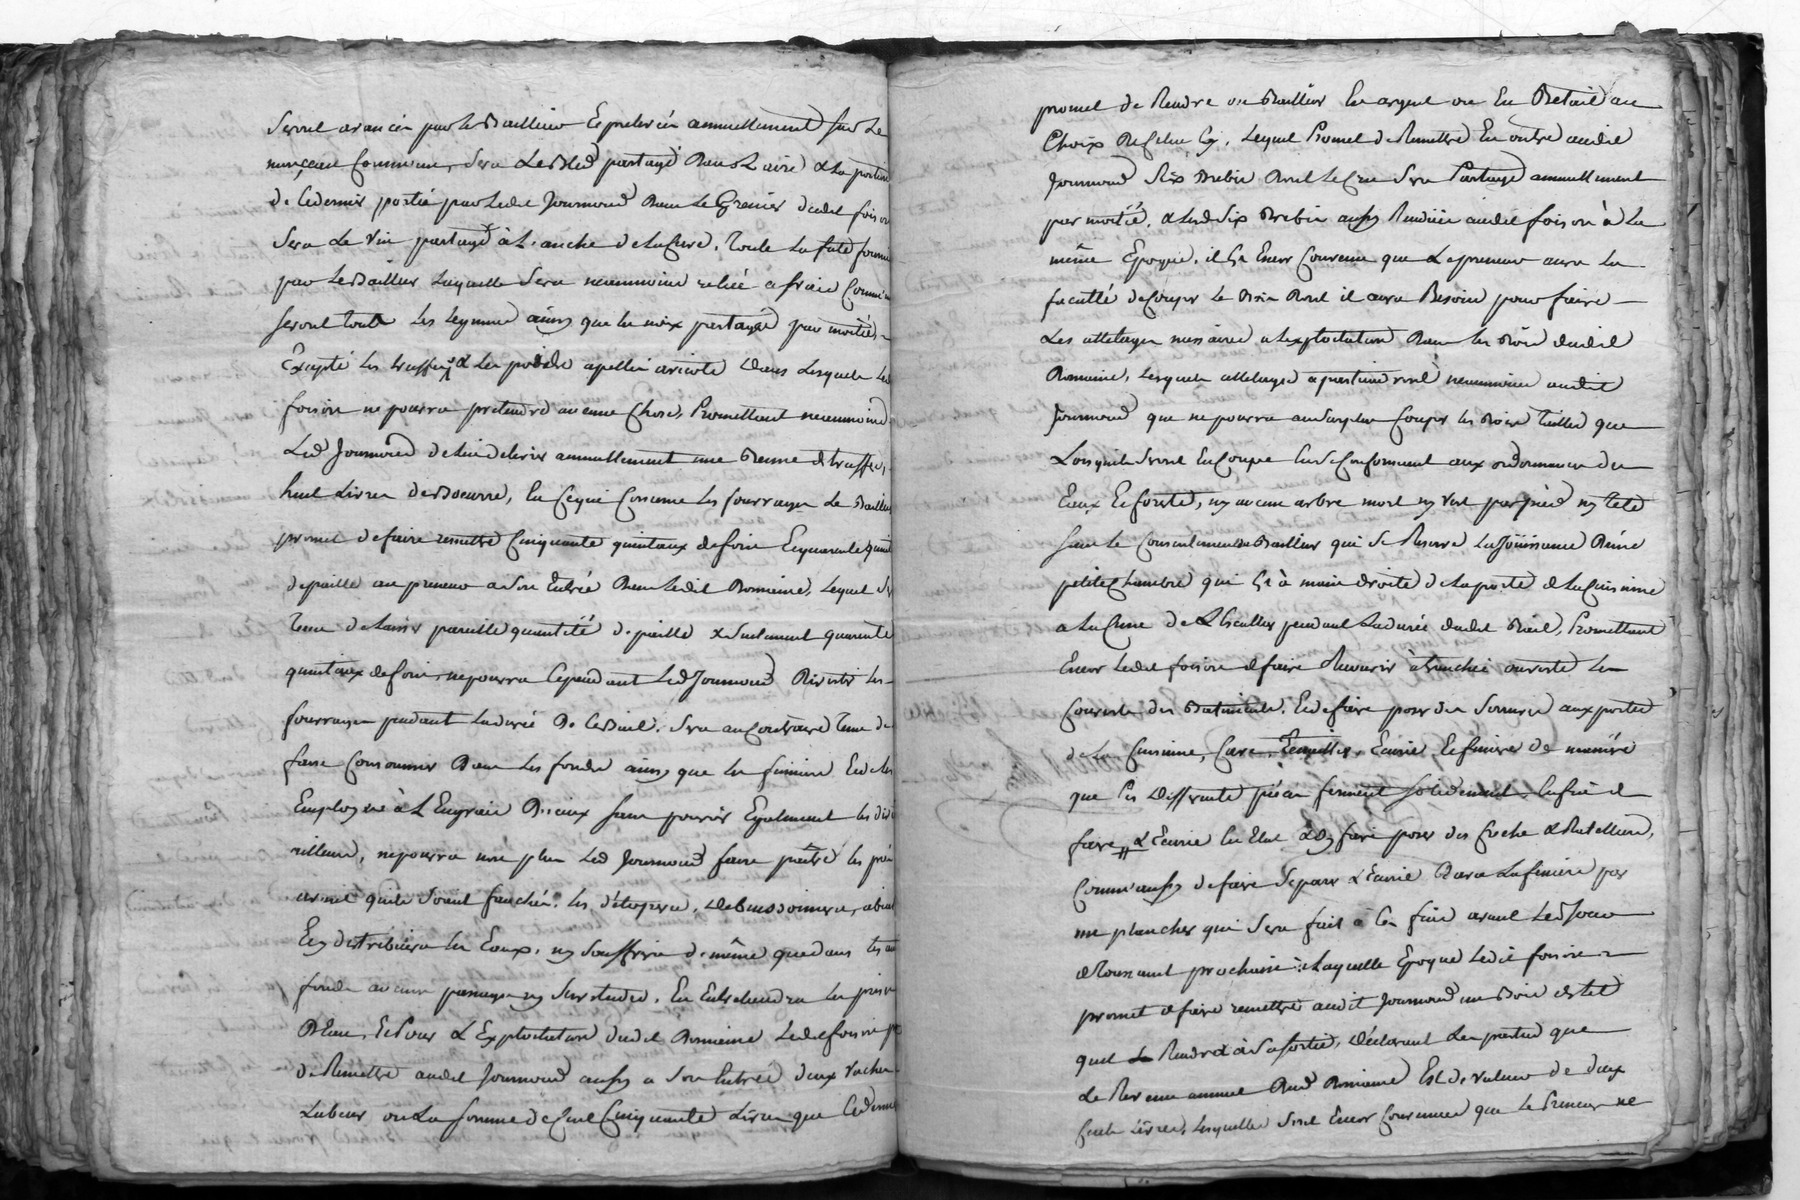 seront avancée par le Bailleur et prelevée annuellement sur le
monçeau commun, sera le Bled partagé dans L'aire & la portion
de ce dernier portée par ledit Journoud dans le Grenier dudit foison
sera le vin partagé à L'anche de la Cuve. Toute la futé fournie
par le Bailleur laquelle sera neanmoins reliée a fraix Commun
seront tout les legumes ainsy que les noix partagé par moitiés
Excepté les truffes & les poids apellés aricots dans lesquels led
foison ne pourra pretendre aucune chose, Promettant neanmoins
Led Journoud de lui delivrer annuellement une Benne de truffes,
huit Livres de Boeurre, En ce qui Concerne les fourrages le Bailleur
promet de faire remettre Cinquante quintaux de foin Et quarante quint
de paille au preneur a son Entrée dans ledit Domaine, lequel se
tenu de laisser pareille quantité de paille & seulement quarante
quintaux de foin, ne pourra Cependant Led Journoud Divertir les
fourrages pendant la durée de ce Bail. sera au Contraire tenu de
faire Consommer dans les fonds ainsy que les fumiers Et les
Employer à L'Engrais D'iceux sans pouvoir Egalement les div
ailleurs, ne pourra non plus Led Journoud faire paître les prés
avant qu'ils soient fauchés. les d'étopera, debuissonnera,
Et y distribuera les Eaux, n'y souffrira de même que dans les au
fonds aucun passage ny servitudes. En Entretiendra les prises
D'Eau, Et Pour L'Exploitation dudit Domaine Ledit foison p
de Remettre audit Journoud aussy a son Entrée deux Vaches
Labeur ou La somme de Cent Cinquante Livres que ce dernier
promet de Rendre au Bailleur En argent ou En Betail au
Choix de celui Cy. Lequel Promet de Remettre En outre audit
Journoud Six Brebis dont le Cru sera Partagé annuellement
par moitié, & Lesd Six Brebis aussy Rendües audit foison à la
même Epoque. il Est Encor Convenu que Le preneur aura la
faculté de Couper le Bois dont il aura Besoin pour faire
Les attelages nessaires a l'exploitation dans les Bois dudit
Domaine, lesquels attelages apartiendront neanmoins audit
Journoud que ne pourra au surplus Couper les Bois taillis que
Lorsqu'ils seront En Coupe En se Conformant aux ordonnances des
Eaux Et forets, ny aucun arbre mort ny Vert par pied ny tete
sans le Consentement du Bailleur qui se Reserve la Joüissance D'une
petite Chambre qui Est à main droite de la porte de la Cuisinne
a la Cime de L'Escallier pendant la durée dudit Bail, Promettant
Encor ledit foison de faire Recouvrir à tranchée ouverte les
Couverts des Batiments. Et de faire poser des serrures aux portes
de la Cuisinne, Cave, Ecurie Et feniere de manière
que les differente piéces ferment solidement. Enfin de
faire L'Ecurie En Etat & d'y faire poser des Creche & Rateliers,
Comm'aussy de faire Separer L'Ecurie D'avec la feniere par
un plancher qui sera fait à ces frais avant led Jour
de Toussaint prochain: à Laquelle Epoque Ledit foison
promet de faire remettre audit Journoud un Bois de lit
quil Rendra à sa sortie, déclarant Les parties que
Le Revenu annuel dud Domaine Est de valeur de deux
Cents Livres, lesquelles sont Encor Convenues que Le Preneur ne